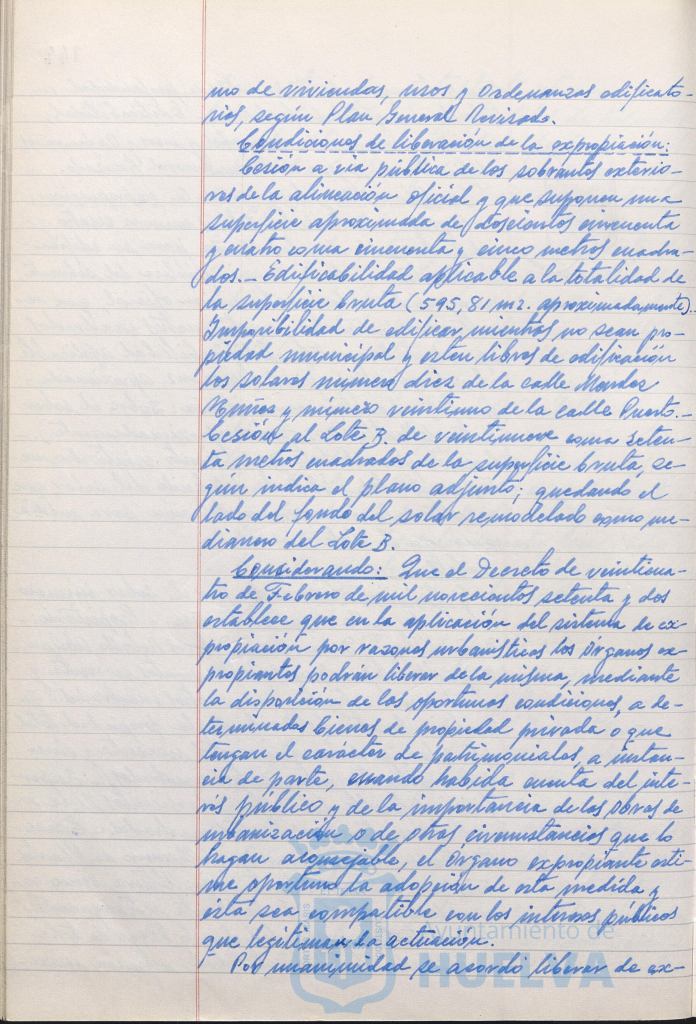 mo de viviendas, usos y Ordenanzas edificato-
rias, según Plan General Revisado.
Condiciones de liberación de la expropiación:
Cesión a via pública de los sobrantes exterio-
res de la alineación oficial y que suponen una
superficie aproximada de doscientos cincuenta
y cuatro coma cincuenta y cinco metros cuadra-
dos.- Edificabilidad aplicable a la totalidad de
la superficie bruta (595,81 m2. aproximadamente).
Imposibilidad de edificar mientras no sean pro-
piedad municipal y esten libres de edificación
los solares número diez de la calle Mendez
Nuñez y número veintiuno de la calle Puerto.-
Cesión al Lote B. de veintinueve coma seten-
ta metros cuadrados de la superficie bruta, se-
gún indica el plano adjunto; quedando el
lado del fondo del solar remodelado como me-
dianero del Lote B.
Considerando: Que el Decreto de veinticua-
tro de Febrero de mil novecientos setenta y dos
establece que en la aplicación del sistema de ex-
propiación por razones urbanísticas los Órganos ex-
propiantes podrán liberar de la misma, mediante
la disposición de las oportunas condiciones, a de-
terminados bienes de propiedad privada o que
tengan el carácter de patrimoniales, a instan-
cia de parte, cuando habida cuenta del inte-
rés público y de la importancia de las obras de
urbanización o de otras circunstancias que lo
hagan aconsejable, el Órgano expropiante esti-
me oportuno la adopción de esta medida y
ésta sea compatible con los intereses públicos
que legitiman la actuación.
Por unanimidad se acordó liberar de ex-
Ayuntamiento de
HUELVA